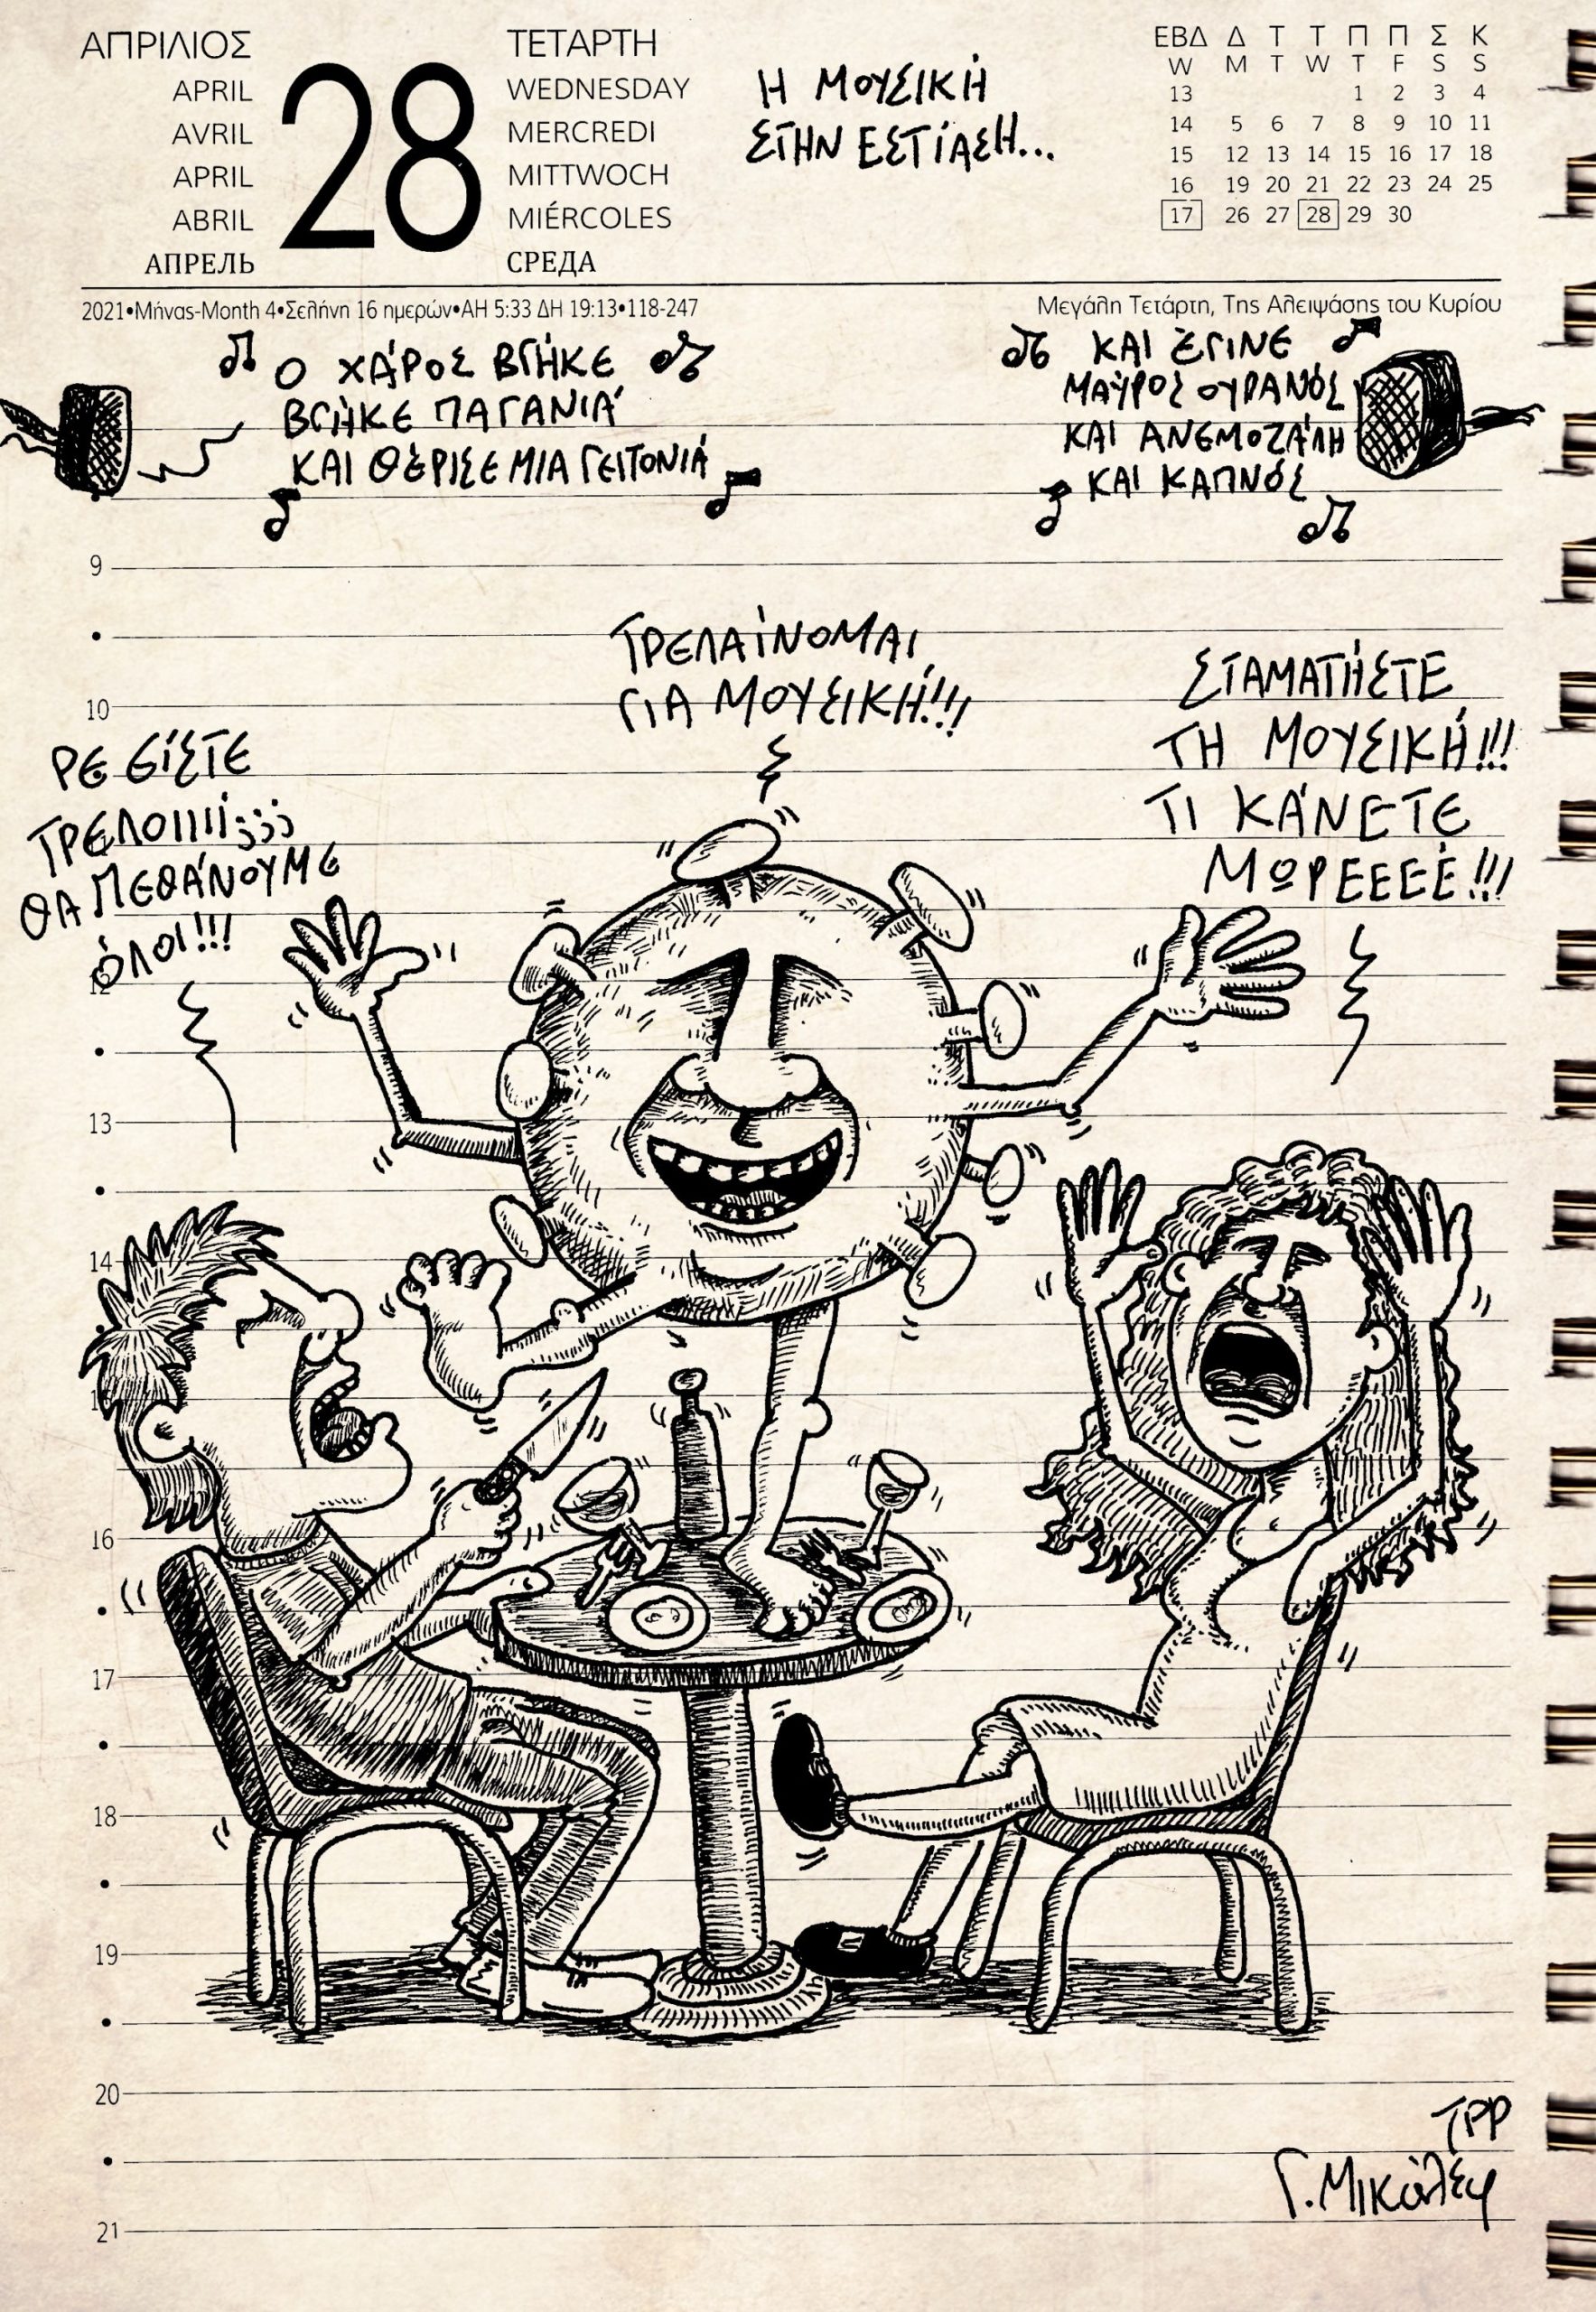 ΑΠΡΙΛΙΟΣ
APRIL
AVRIL
APRIL
ABRIL
АПРЕЛЬ
28
ΤΕΤΑΡΤΗ
WEDNESDAY
MERCREDI
MITTWOCH
MIÉRCOLES
СРЕДА
Η ΜΟΥΣΙΚΉ
ΣΤΗΝ ΕΣΤΊΑΣΗ...
ΕΒΔ Δ Τ Τ Π Π Σ Κ
W M T W T F S S
13 1 2 3 4
14 5 6 7 8 9 10 11
15 12 13 14 15 16 17 18
16 19 20 21 22 23 24 25
17 26 27 28 29 30
2021•Μήνας-Month 4•Σελήνη 16 ημερών•ΑΗ 5:33 ΔΗ 19:13•118-247
Μεγάλη Τετάρτη, Της Αλειψάσης του Κυρίου
Ο ΧΆΡΟΣ ΒΓΉΚΕ
ΒΓΉΚΕ ΠΑΓΑΝΙΆ
ΚΑΙ ΘΈΡΙΣΕ ΜΙΑ ΓΕΙΤΟΝΙΆ
ΚΑΙ ΈΓΙΝΕ
ΜΑΎΡΟΣ ΟΥΡΑΝΌΣ
ΚΑΙ ΑΝΕΜΟΖΆΛΗ
ΚΑΙ ΚΑΠΝΌΣ
9
ΤΡΕΛΑΊΝΟΜΑΙ
ΓΙΑ ΜΟΥΣΙΚΉ!!!
ΣΤΑΜΑΤΉΣΤΕ
ΤΗ ΜΟΥΣΙΚΉ!!!
ΤΙ ΚΆΝΕΤΕ
ΜΩΡΕΕΕΈ!!!
10
ΡΕ ΕΊΣΤΕ
ΤΡΕΛΟΙΙΙΊ;;;
ΘΑ ΠΕΘΆΝΟΥΜΕ
ΌΛΟΙ!!!
12
13
14
16
17
18
19
20
21
ΤΡΡ
Γ. Μικάλεφ